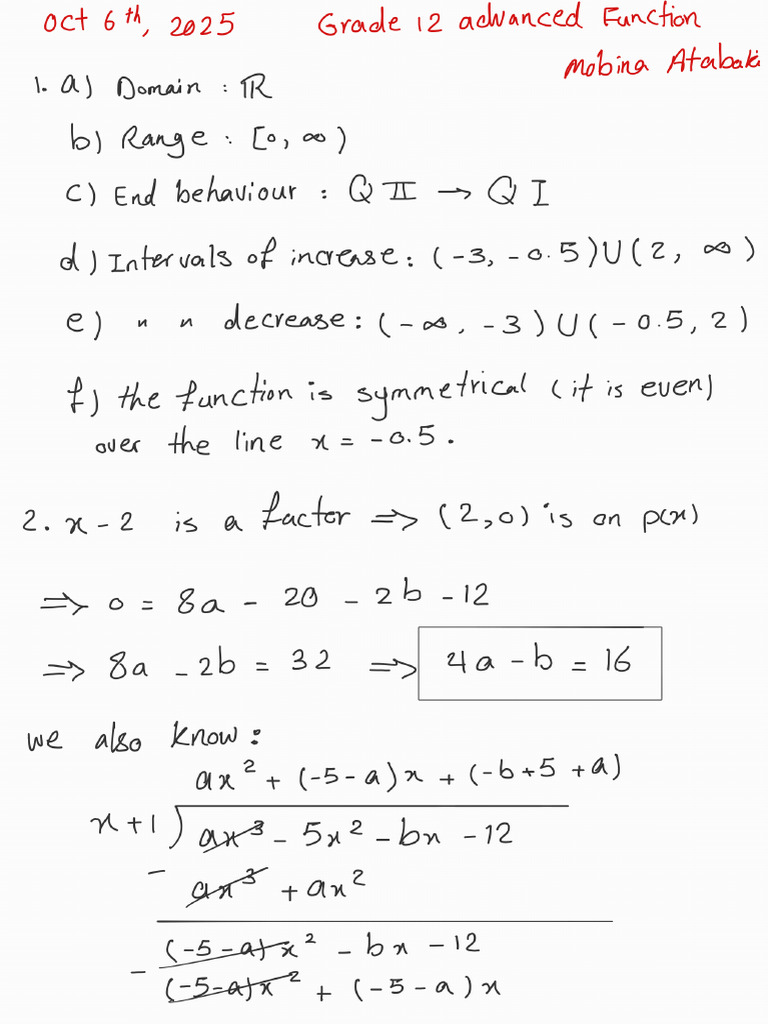 Oct 6th, 2025 Grade 12 advanced Function
Mobina Atabaki
1. a) Domain : ℝ
b) Range : [0, ∞)
c) End behaviour : Q II → Q I
d) Intervals of increase : (-3, -0.5)U(2, ∞)
e) " " decrease : (-∞, -3)U(-0.5, 2)
f) the function is symmetrical (it is even)
over the line x = -0.5.
2. x-2 is a factor ⇒ (2,0) is on p(x)
⇒ 0 = 8a - 20 - 2b - 12
⇒ 8a - 2b = 32 ⇒ 4a - b = 16
we also know :
ax² + (-5-a)x + (-b+5+a)
x+1 ) ax³ - 5x² - bx - 12
- ax³ + ax²
(-5-a)x² - bx - 12
- (-5-a)x² + (-5-a)x